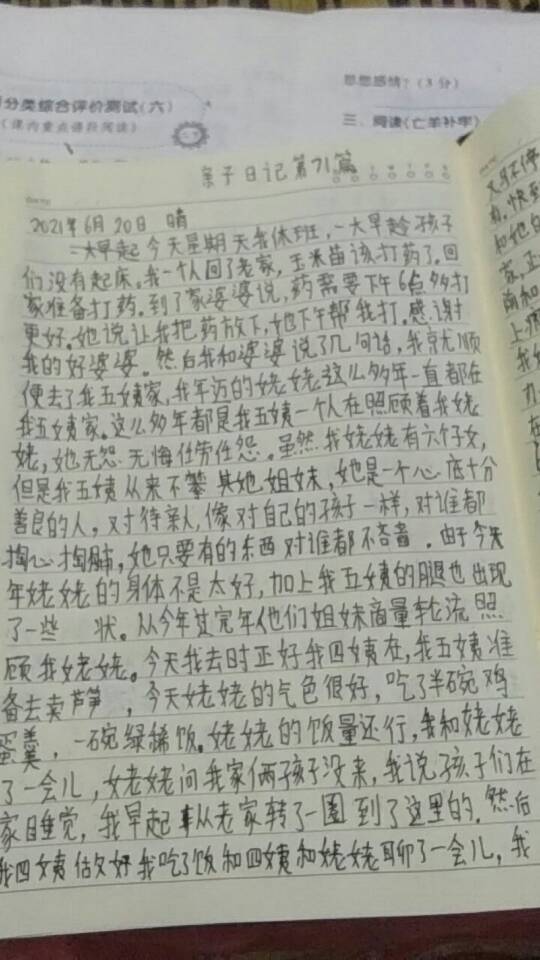 思想感情?(3分)
分类综合评价测试(六)
(课内重点语段阅读)
三、阅读(亡羊补牢)
亲子日记第71篇
2021年6月20日 晴
一大早起今天星期天我休班,一大早趁孩子
们没有起床。我一个人回了老家,玉米苗该打药了。回
家准备打药。到了家婆婆说,药需要下午6点多打
更好。她说让我把药放下,她下午帮我打。感谢
我的好婆婆。然后我和婆婆说了几句话,我就顺
便去了我五姨家,我年迈的姥姥这么多年一直都在
我五姨家。这么多年都是我五姨一个人在照顾着我姥
姥,她无怨无悔任劳任怨。虽然我姥姥有六个子女,
但是我五姨从来不攀其她姐妹,她是一个心底十分
善良的人,对待亲人,像对自己的孩子一样,对谁都
掏心掏肺,她只要有的东西对谁都不吝啬。由于今天
年姥姥的身体不是太好,加上我五姨的腿也出现
了一些 状。从今年过完年他们姐妹商量轮流照
顾我姥姥。今天我去时正好我四姨在,我五姨准
备去卖芦笋,今天姥姥的气色很好,吃了半碗鸡
蛋羹,一碗绿稀饭。姥姥的饭量还行,我和姥姥
了一会儿,姥姥问我家俩孩子没来,我说孩子们在
家睡觉,我早起从老家转了一圈到了这里的。然后
我四姨做好我吃了饭和四姨和姥姥聊了一会儿,我